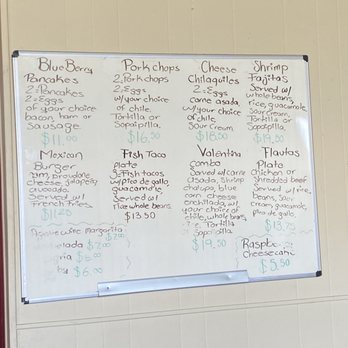 BlueBerry
Pancakes
2-Pancakes
2-Eggs
of your choice
bacon, ham or
Sausage.
$11.00
Porkchops
2 Porkchops
2-Eggs
w/your choice
of chile.
Tortilla or
Sopaipilla.
$16.50
Cheese
Chilaquiles
2-Eggs
carne asada,
w/your choice
of chile
Sour Cream.
$18.50
Shrimp
Fajitas
Served w/
whole beans,
rice, guacamole,
Sour Cream,
Tortilla or
Sopaipilla.
$19.50
Mexican
Burger
ham, provolone
cheese, jalapeno,
avocado.
Served w/
French Fries
Fish Taco
plate
3-Fish tacos
w/pico de gallo,
guacamole,
Served w/
rice whole beans.
$13.50
Valentina
Combo
Served w/carne
asada, Shrimp
chalupa, blue
corn cheese
enchilada, w/
your choice of
chile, whole beans,
Tortilla
or Sopaipilla
$19.50
Flautas
Plate
Chicken or
Shredded beef
Served w/rice,
beans, Sour
cream, guacamole,
pico de gallo.
Margarita
$7.00
$6.00
Raspb
Cheesecake
$5.50